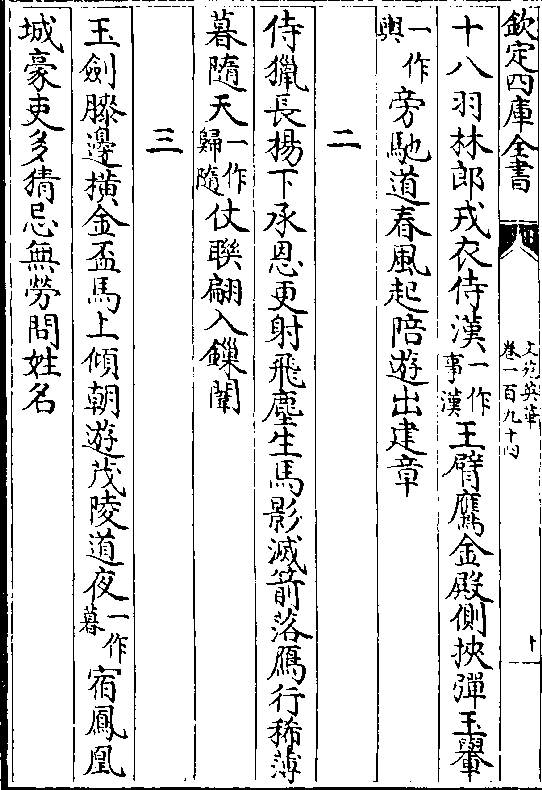 欽定四庫全書
文苑英華
卷一百九十四
十八羽林郎戎衣侍漢一作事漢王臂鷹金殿側挾彈玉輿
一作輿旁馳道春風起陪遊出建章
二
侍獵長楊下承恩更射飛塵生馬影滅箭落鴈行稀薄
暮隨天一作歸隨仗聯翩入鏁闈
三
玉劍膝邊橫金盃馬上傾朝遊茂陵道夜一作暮宿鳳凰
城豪吏多猜忌無勞問姓名